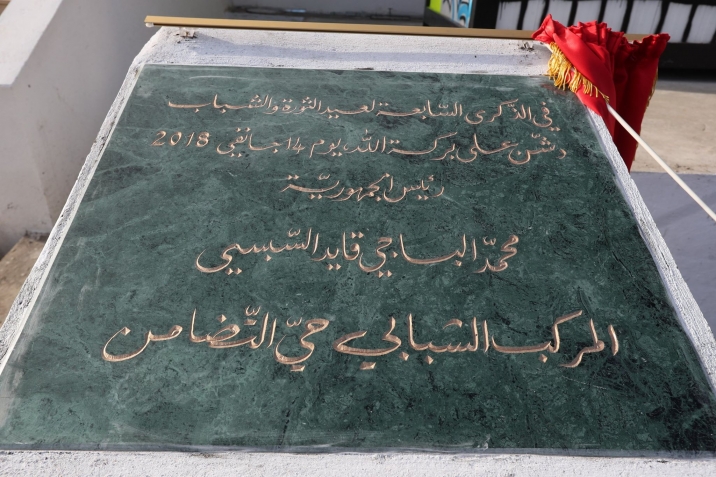 في الذكرى السّابعة لعيد الثورة والشباب
دشّن على بركة الله يوم 14 جانفي 2018
رئيس الجمهوريّة
محمّد الباجي قايد السّبسي
المركب الشبابي حيّ التّضامن